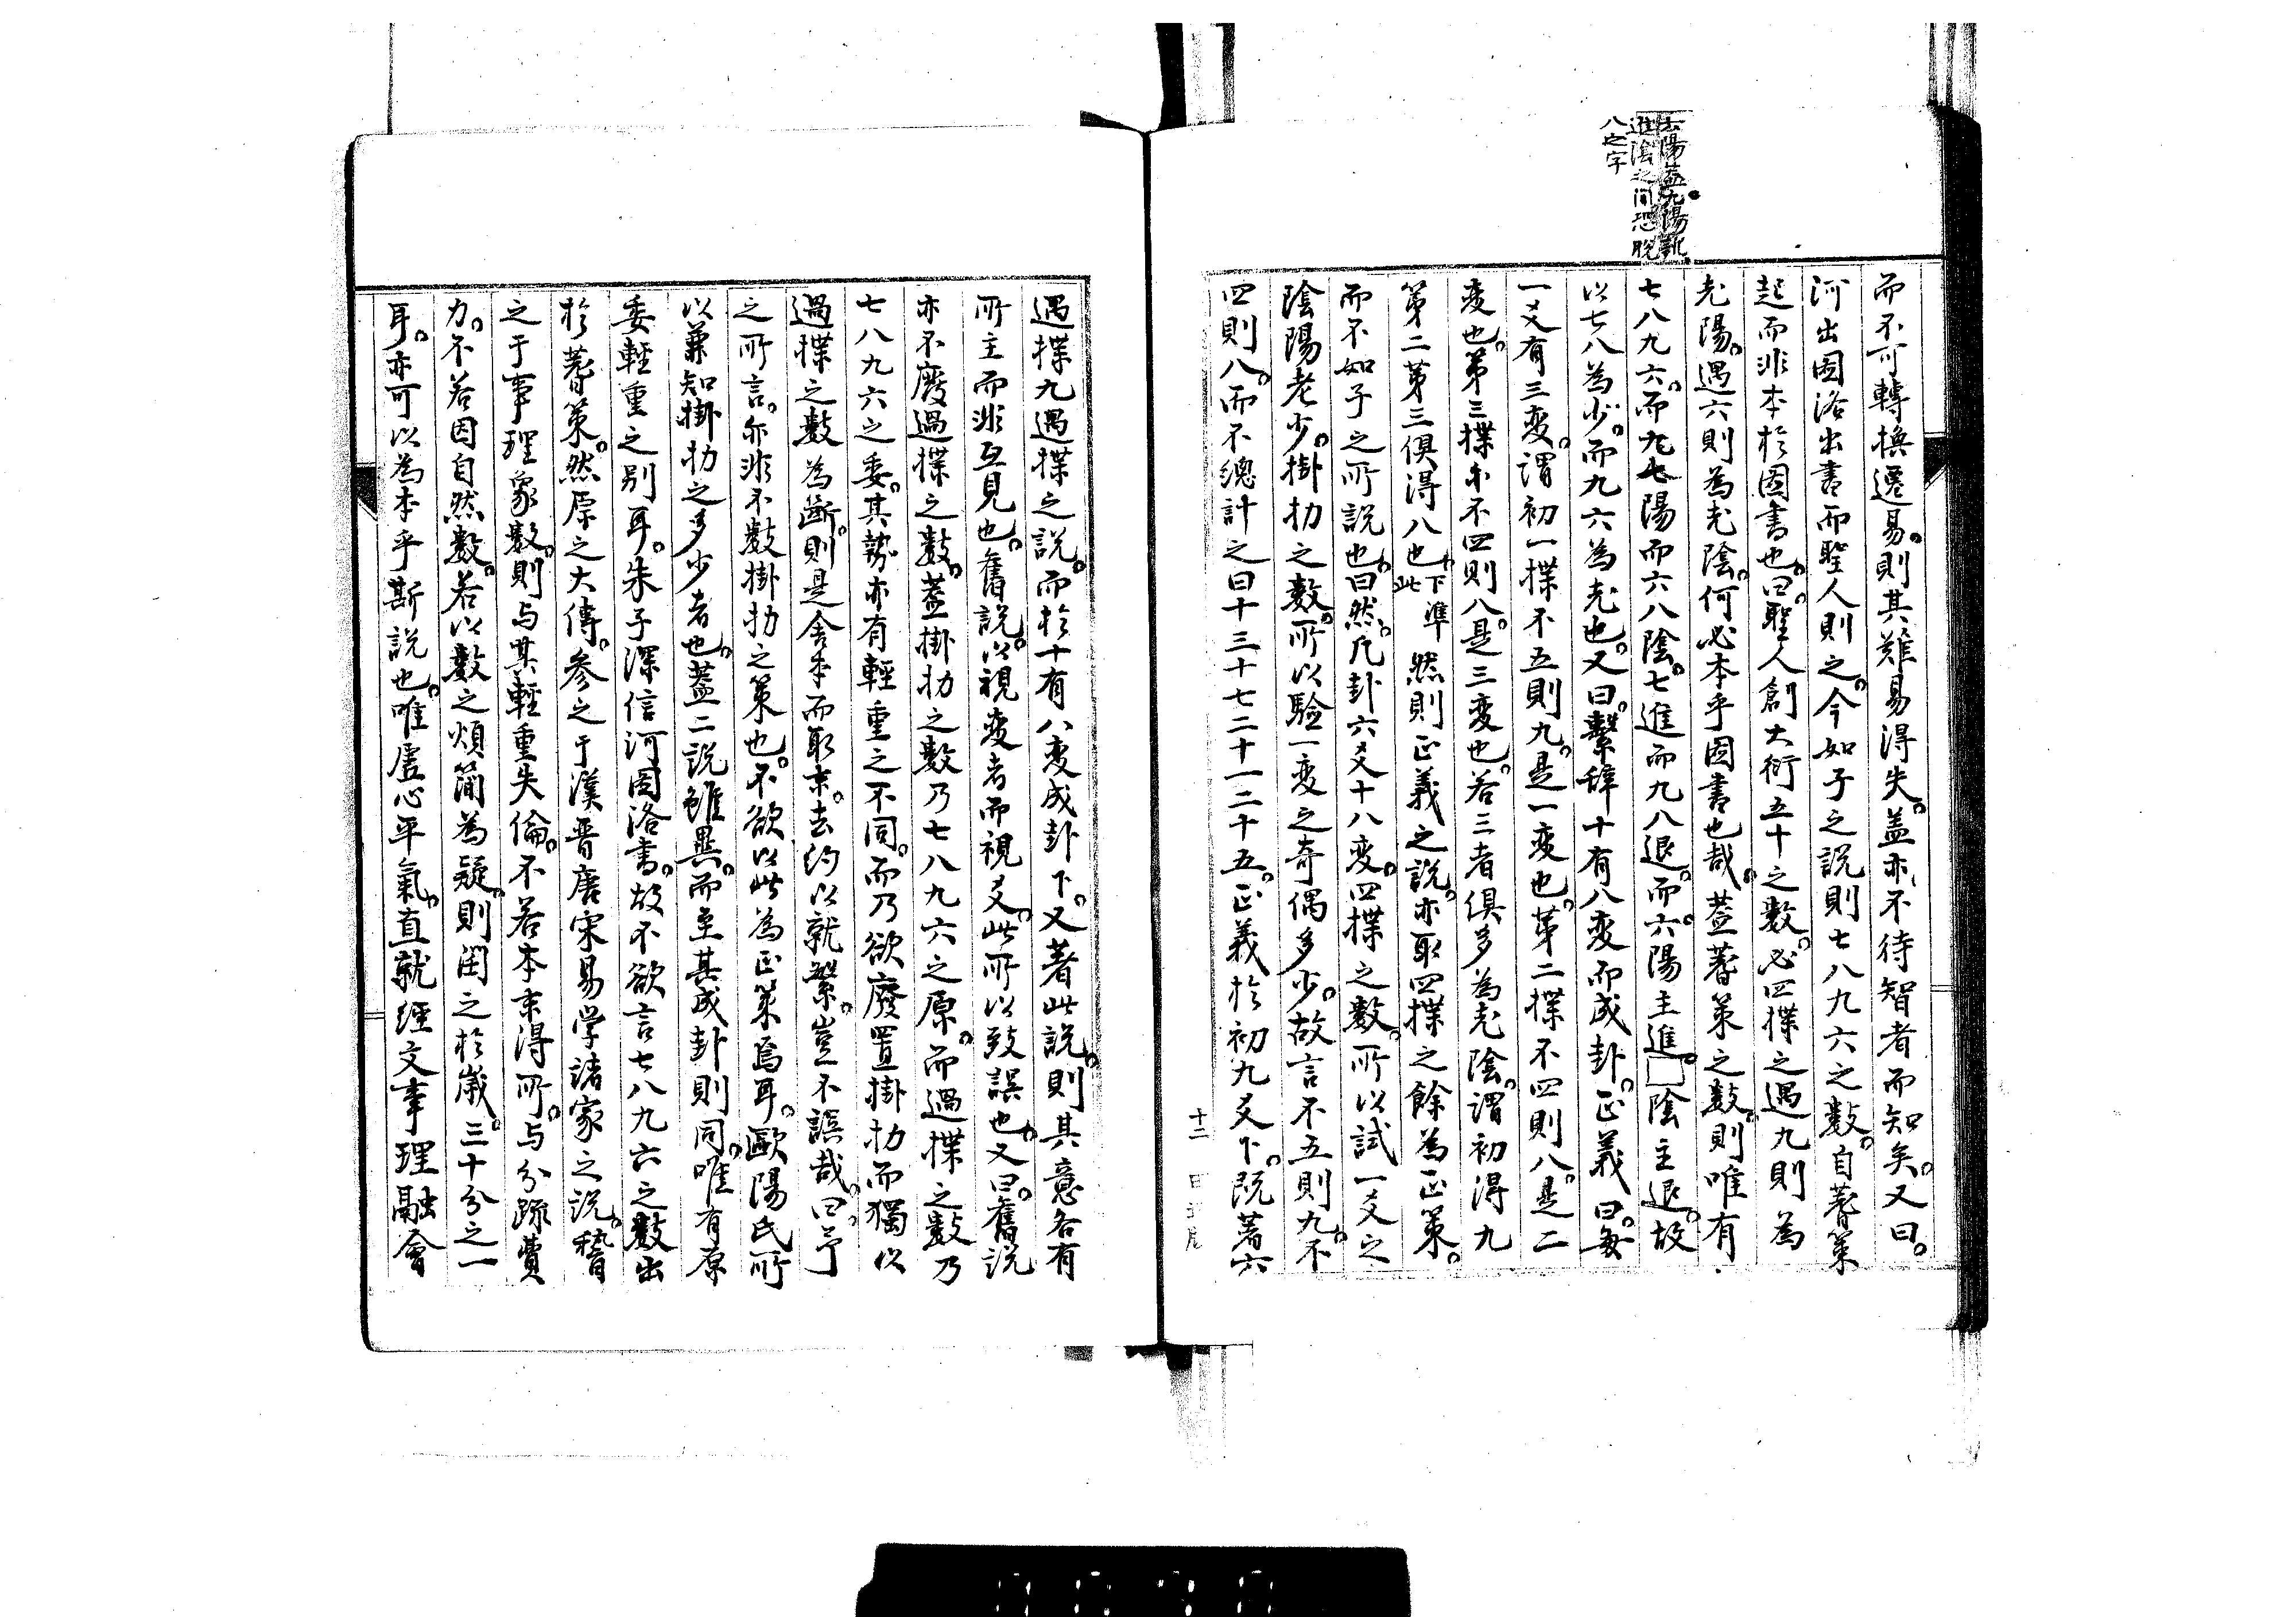 六陽蓋九陽訛
進陰之間恐脫
八之字
而不可轉換遷易。則其難易得失。盖亦不待智者而知矣。又曰。
河出図洛出書而聖人則之。今如子之説則七八九六之數。自蓍策
起而非本於図書也。曰。聖人創大衍五十之數。必四揲之遇九則為
老陽。遇六則為老陰。何必本乎図書也哉。蓋蓍策之數。則唯有
七八九六。而九七陽而六八陰。七進而九八退。而六。陽主進。□陰主退。故
以七八為少。而九六為老也。又曰。繫辞十有八変而成卦。正義曰。每
一爻有三変。謂初一揲不五則九。是一変也。第二揲不四則八。是二
変也。第三揲亦不四則八。是三変也。若三者俱多為老陰。謂初得九
第二第三俱得八也。下準此 然則正義之説。亦取四揲之餘為正策。
而不如子之所説也。曰然。凡卦六爻十八変。四揲之數。所以試一爻之
陰陽老少。掛扐之數。所以驗一変之奇偶多少。故言不五則九。不
四則八。而不總計之曰十三十七二十一二十五。正義於初九爻下。既著六
十二
遇揲九遇揲之説。而於十有八変成卦下。又著此説。則其意各有
所主而非互見也。舊説。以視変者而視爻。此所以致誤也。又曰。舊説
亦不廢過揲之數。蓋掛扐之數乃七八九六之原。而過揲之數乃
七八九六之委。其勢亦有輕重之不同。而乃欲廢置掛扐而獨以
過揲之數為斷。則是舍本而取末。去約以就繁。豈不誤哉。曰予
之所言。亦非不數掛扐之策也。不欲以此為正策焉耳。歐陽氏所
以兼知掛扐之多少者也。蓋二説雖異。而至其成卦則同。唯有原
委輕重之别耳。朱子深信河図洛書。故不欲言七八九六之數出
於蓍策。然原之大傳。參之于漢晋唐宋易学諸家之説。稽
之于事理象數。則与其輕重失倫。不若本末得所。与分疏費
力。不若因自然數。若以數之煩簡為疑。則閏之於歳。三十分之一
耳。亦可以為本乎斯説也。唯虚心平氣。直就經文事理融會